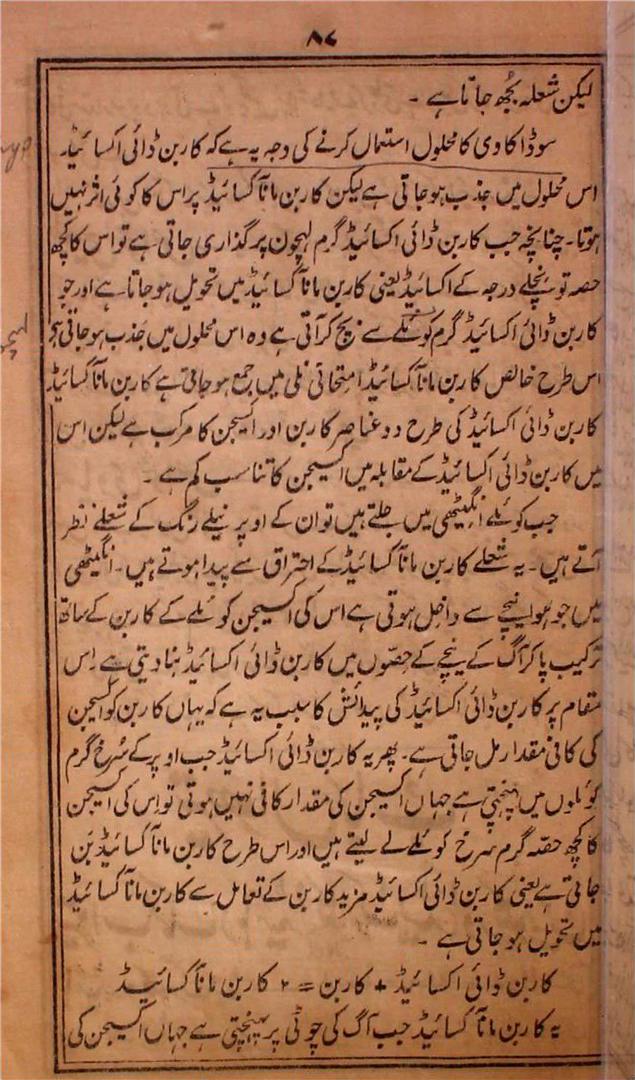 ۸۷
لیکن شعلہ بُجھ جاتا ہے ۔
سوڈا کاوی کا محلول استعمال کرنے کی وجہ یہ ہے کہ کاربن ڈائی اکسائیڈ
اس محلول میں جذب ہو جاتی ہے لیکن کاربن مانآکسائیڈ پر اس کا کوئی اثر نہیں
ہوتا۔ چنانچہ جب کاربن ڈائی اکسائیڈ گرم پر گذاری جاتی ہے تو اس کا کچھ
حصہ تو نچلے درجہ کے اکسائیڈ یعنی کاربن مانآکسائیڈ میں تحویل ہو جاتا ہے اور جو
کاربن ڈائی اکسائیڈ گرم کوئلے سے بچ کر آتی ہے وہ اس محلول میں جذب ہو جاتی ہے
اس طرح خالص کاربن مانآکسائیڈ امتحانی نلی میں جمع ہو جاتی ہے کاربن مانآکسائیڈ
کاربن ڈائی اکسائیڈ کی طرح دو عناصر کاربن اور اکسیجن کا مرکب ہے لیکن اس
میں کاربن ڈائی اکسائیڈ کے مقابلہ میں اکسیجن کا تناسب کم ہے ۔
جب کوئلے انگیٹھی میں جلتے ہیں تو ان کے اوپر نیلے رنگ کے شعلے نظر
آتے ہیں۔ یہ شعلے کاربن مانآکسائیڈ کے احتراق سے پیدا ہوتے ہیں۔ انگیٹھی
میں جو ہوا نیچے سے داخل ہوتی ہے اس کی اکسیجن کوئلے کے کاربن کے ساتھ
ترکیب پا کر آگ کے نیچے کے حصّوں میں کاربن ڈائی اکسائیڈ بنا دیتی ہے۔ اِس
مقام پر کاربن ڈائی اکسائیڈ کی پیدائش کا سبب یہ ہے کہ یہاں کاربن کو اکسیجن
کی کافی مقدار مل جاتی ہے۔ پھر یہ کاربن ڈائی اکسائیڈ جب اوپر کے سُرخ گرم
کوئلوں میں پہنچتی ہے جہاں اکسیجن کی مقدار کافی نہیں ہوتی تو اس کی اکسیجن
کا کچھ حصہ گرم سرخ کوئلے لے لیتے ہیں اور اس طرح کاربن مانآکسائیڈ بَن
جاتی ہے یعنی کاربن ڈائی اکسائیڈ مزید کاربن کے تعامل سے کاربن مانآکسائیڈ
میں تحویل ہو جاتی ہے ۔
کاربن ڈائی اکسائیڈ + کاربن = ۲ کاربن مانآکسائیڈ
یہ کاربن مانآکسائیڈ جب آگ کی چوٹی پر پہنچتی ہے جہاں اکسیجن کی